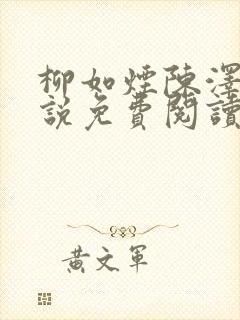 柳如煙陳澤
說免費閱讀
黃文軍